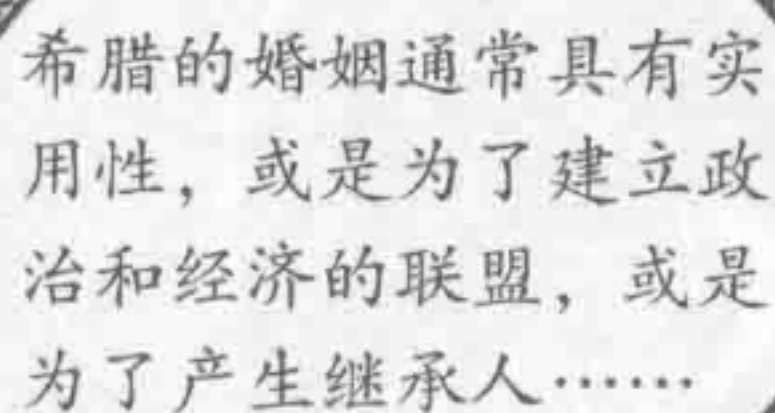 希腊的婚姻通常具有实
用性，或是为了建立政
治和经济的联盟，或是
为了产生继承人……